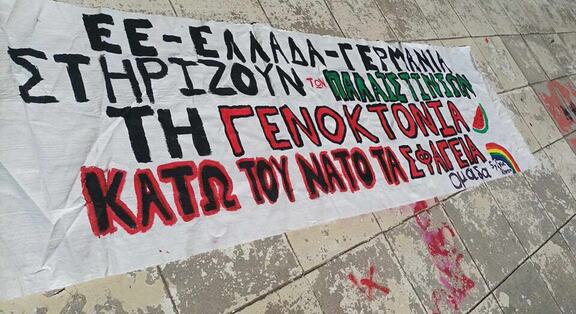 ΕΕ-ΕΛΛΑΔΑ-ΓΕΡΜΑΝΙΑ
ΣΤΗΡΙΖΟΥΝ ΤΩΝ ΠΑΛΑΙΣΤΙΝΙΩΝ
ΤΗ ΓΕΝΟΚΤΟΝΙΑ
ΚΑΤΩ ΤΟΥ ΝΑΤΟ ΤΑ ΣΦΑΓΕΙΑ
Ομάδα